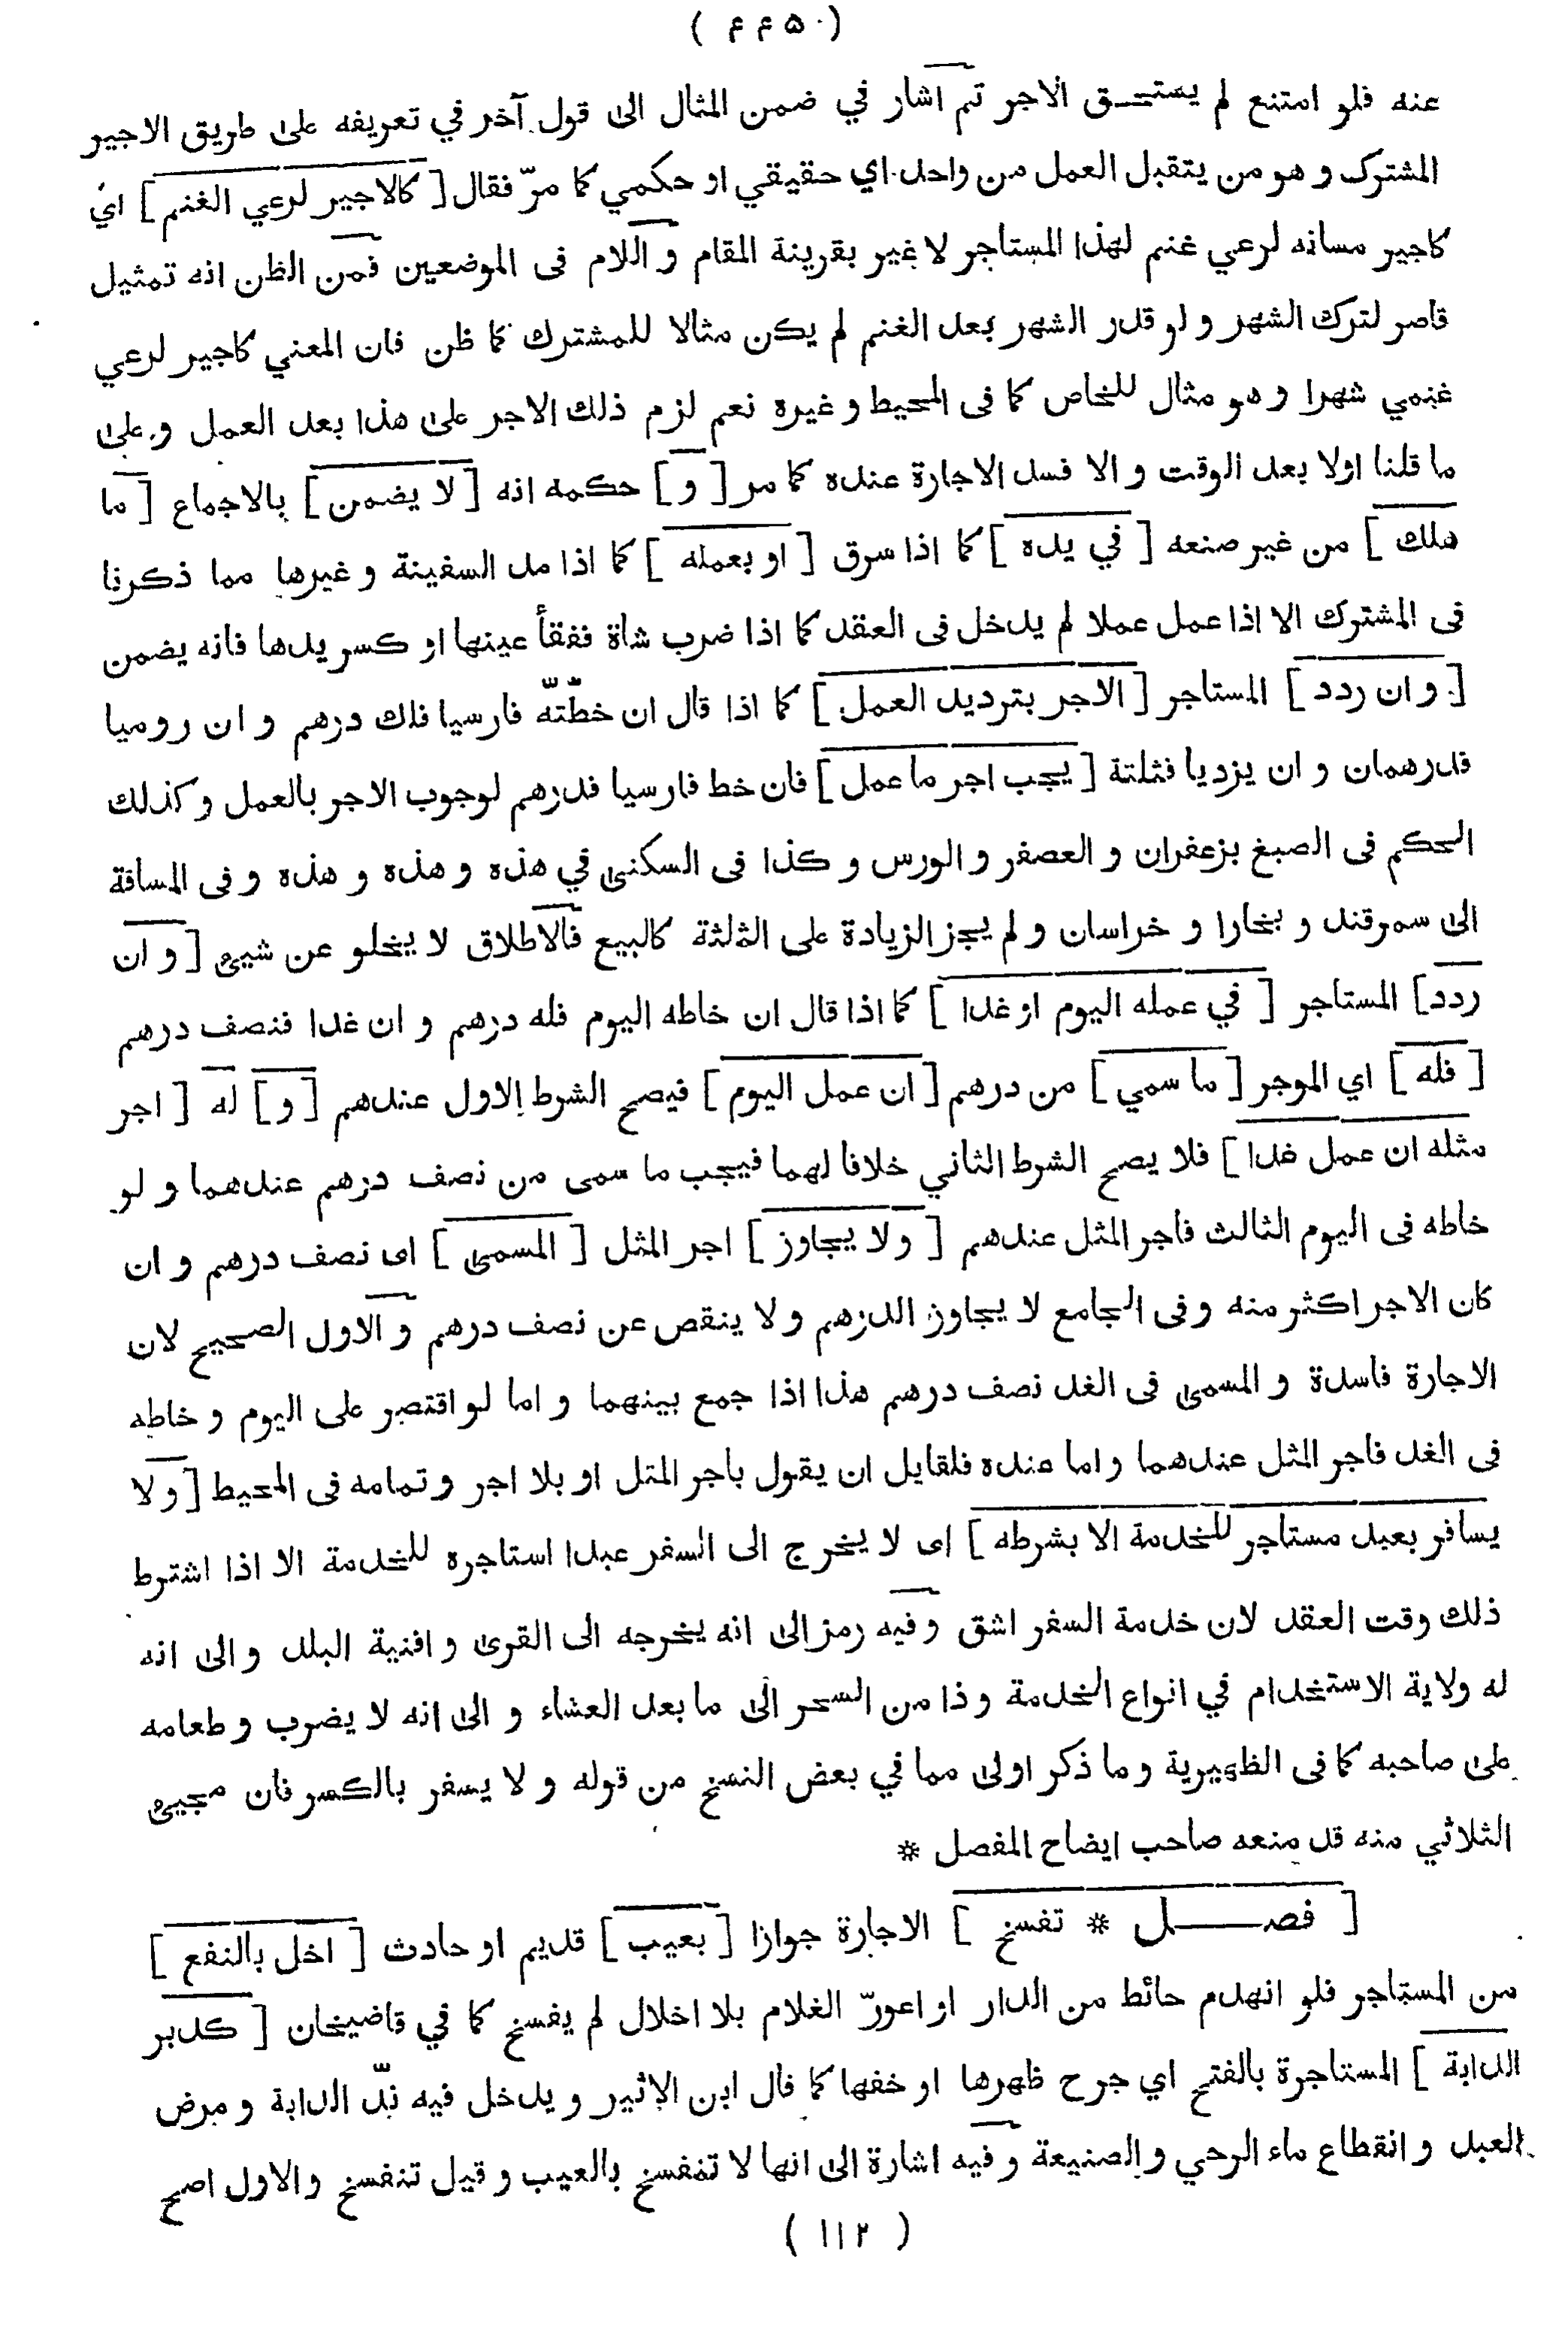 ( ٤٤٥ )
عنه فلو امتنع لم يستحق الاجر ثم اشار في ضمن المثال الى قول آخر في تعريفه على طريق الاجير
المشترك و هو من يتقبل العمل من واحد اي حقيقي او حكمي كما مرّ فقال [ كالاجير لرعي الغنم ] اي
كاجير مسانه لرعي غنم لهذا المستاجر لا غير بقرينة المقام و اللام فى الموضعين فمن الظن انه تمثيل
قاصر لترك الشهر و لو قدر الشهر بعد الغنم لم يكن مثالا للمشترك كما ظن فان المعني كاجير لرعي
غنمي شهرا و هو مثال للخاص كما فى المحيط و غيره نعم لزم ذلك الاجر على هذا بعد العمل و على
ما قلنا اولا بعد الوقت و الا فسد الاجارة عنده كما مر [ و ] حكمه انه [ لا يضمن ] بالاجماع [ ما
هلك ] من غير صنعه [ في يده ] كما اذا سرق [ او بعمله ] كما اذا مد السفينة و غيرها مما ذكرنا
فى المشترك الا اذا عمل عملا لم يدخل فى العقد كما اذا ضرب شاة ففقأ عينها او كسر يدها فانه يضمن
[ و ان ردد ] المستاجر [ الاجر بترديد العمل ] كما اذا قال ان خطّتّه فارسيا فلك درهم و ان روميا
فدرهمان و ان يزديا فثلثة [ يجب اجر ما عمل ] فان خط فارسيا فدرهم لوجوب الاجر بالعمل و كذلك
الحكم فى الصبغ بزعفران و العصفر و الورس و كذا فى السكنى في هذه و هذه و هذه و فى المسافة
الى سمرقند و بخارا و خراسان و لم يجز الزيادة على الثلثة كالبيع فالاطلاق لا يخلو عن شيئ [ و ان
ردد ] المستاجر [ في عمله اليوم او غدا ] كما اذا قال ان خاطه اليوم فله درهم و ان غدا فنصف درهم
[ فله ] اي الموجر [ ما سمي ] من درهم [ ان عمل اليوم ] فيصح الشرط الاول عندهم [ و ] له [ اجر
مثله ان عمل غدا ] فلا يصح الشرط الثاني خلافا لهما فيجب ما سمى من نصف درهم عندهما و لو
خاطه فى اليوم الثالث فاجر المثل عندهم [ ولا يجاوز ] اجر المثل [ المسمى ] اى نصف درهم و ان
كان الاجر اكثر منه و فى الجامع لا يجاوز الدرهم و لا ينقص عن نصف درهم و الاول الصحيح لان
الاجارة فاسدة و المسمى فى الغد نصف درهم هذا اذا جمع بينهما و اما لو اقتصر على اليوم و خاطه
فى الغد فاجر المثل عندهما و اما عنده فلقايل ان يقول باجر المثل او بلا اجر و تمامه فى المحيط [ و لا
يسافر بعبد مستاجر للخدمة الا بشرطه ] اى لا يخرج الى السفر عبدا استاجره للخدمة الا اذا اشترط
ذلك وقت العقد لان خدمة السفر اشق و فيه رمز الى انه يخرجه الى القرى و افنية البلد و الى انه
له ولاية الاستخدام في انواع الخدمة و ذا من السحر الى ما بعد العشاء و الى انه لا يضرب و طعامه
على صاحبه كما فى الظهيرية و ما ذكر اولى مما في بعض النسخ من قوله و لا يسفر بالكسر فان مجيئ
الثلاثي منه قد منعه صاحب ايضاح المفصل *
[ فصـــل * تفسخ ] الاجارة جوازا [ بعيب ] قديم او حادث [ اخل بالنفع ]
من المستاجر فلو انهدم حائط من الدار او اعورّ الغلام بلا اخلال لم يفسخ كما في قاضيخان [ كدبر
الدابة ] المستاجرة بالفتح اي جرح ظهرها او خفها كما قال ابن الاثير و يدخل فيه ندّ الدابة و مرض
العبد و انقطاع ماء الرحي و الصنيعة و فيه اشارة الى انها لا تنفسخ بالعيب و قيل تنفسخ و الاول اصح
( ١١٢ )